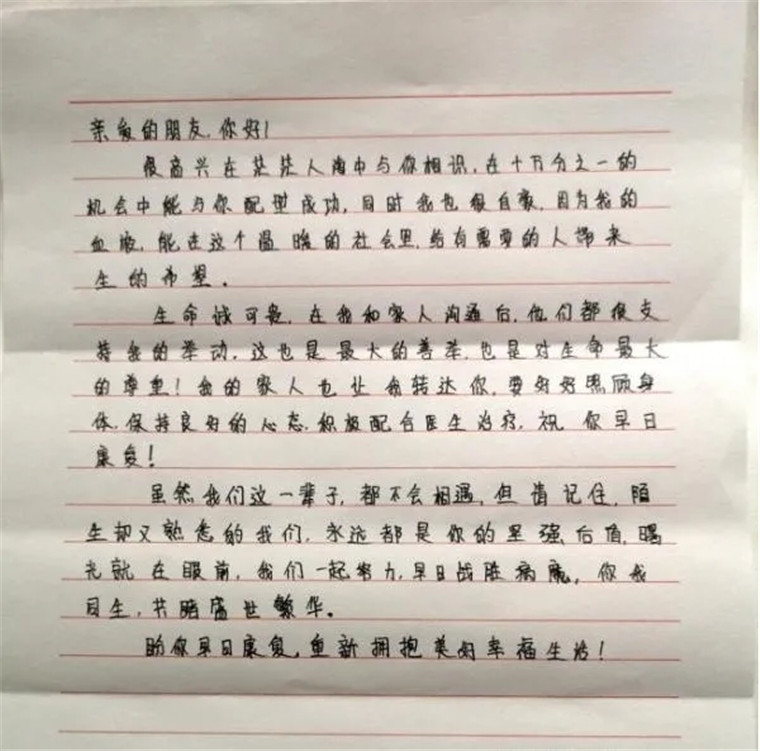 亲爱的朋友,你好!
很高兴在茫茫人海中与你相识,在十万分之一的
机会中能与你配型成功,同时我也很自豪,因为我的
血液,能在这个温暖的社会里,给有需要的人带来
生的希望。
生命诚可贵,在我和家人沟通后,他们都很支
持我的举动,这也是最大的善举,也是对生命最大
的尊重!我的家人也让我转达你,要好好照顾身
体,保持良好的心态,积极配合医生治疗,祝 你早日
康复!
虽然我们这一辈子,都不会相遇,但请记住,陌
生却又熟悉的我们,永远都是你的坚强后盾,曙
光就在眼前,我们一起努力,早日战胜病魔,你我
同生,共睹盛世繁华。
盼你早日康复,重新拥抱美好幸福生活!